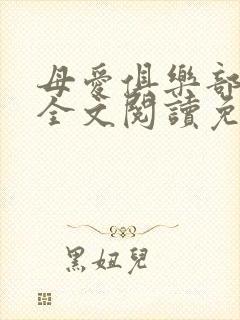 母愛俱樂部
全文閱讀免
黑妞兒